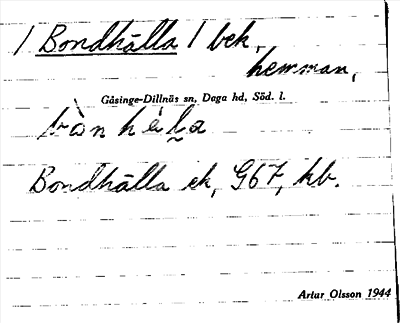 / Bondhälla / bek,
hemman,
Gåsinge-Dillnäs sn, Daga hd, Söd. l.
Bondhälla ek, G67, hb.
Artur Olsson 1944